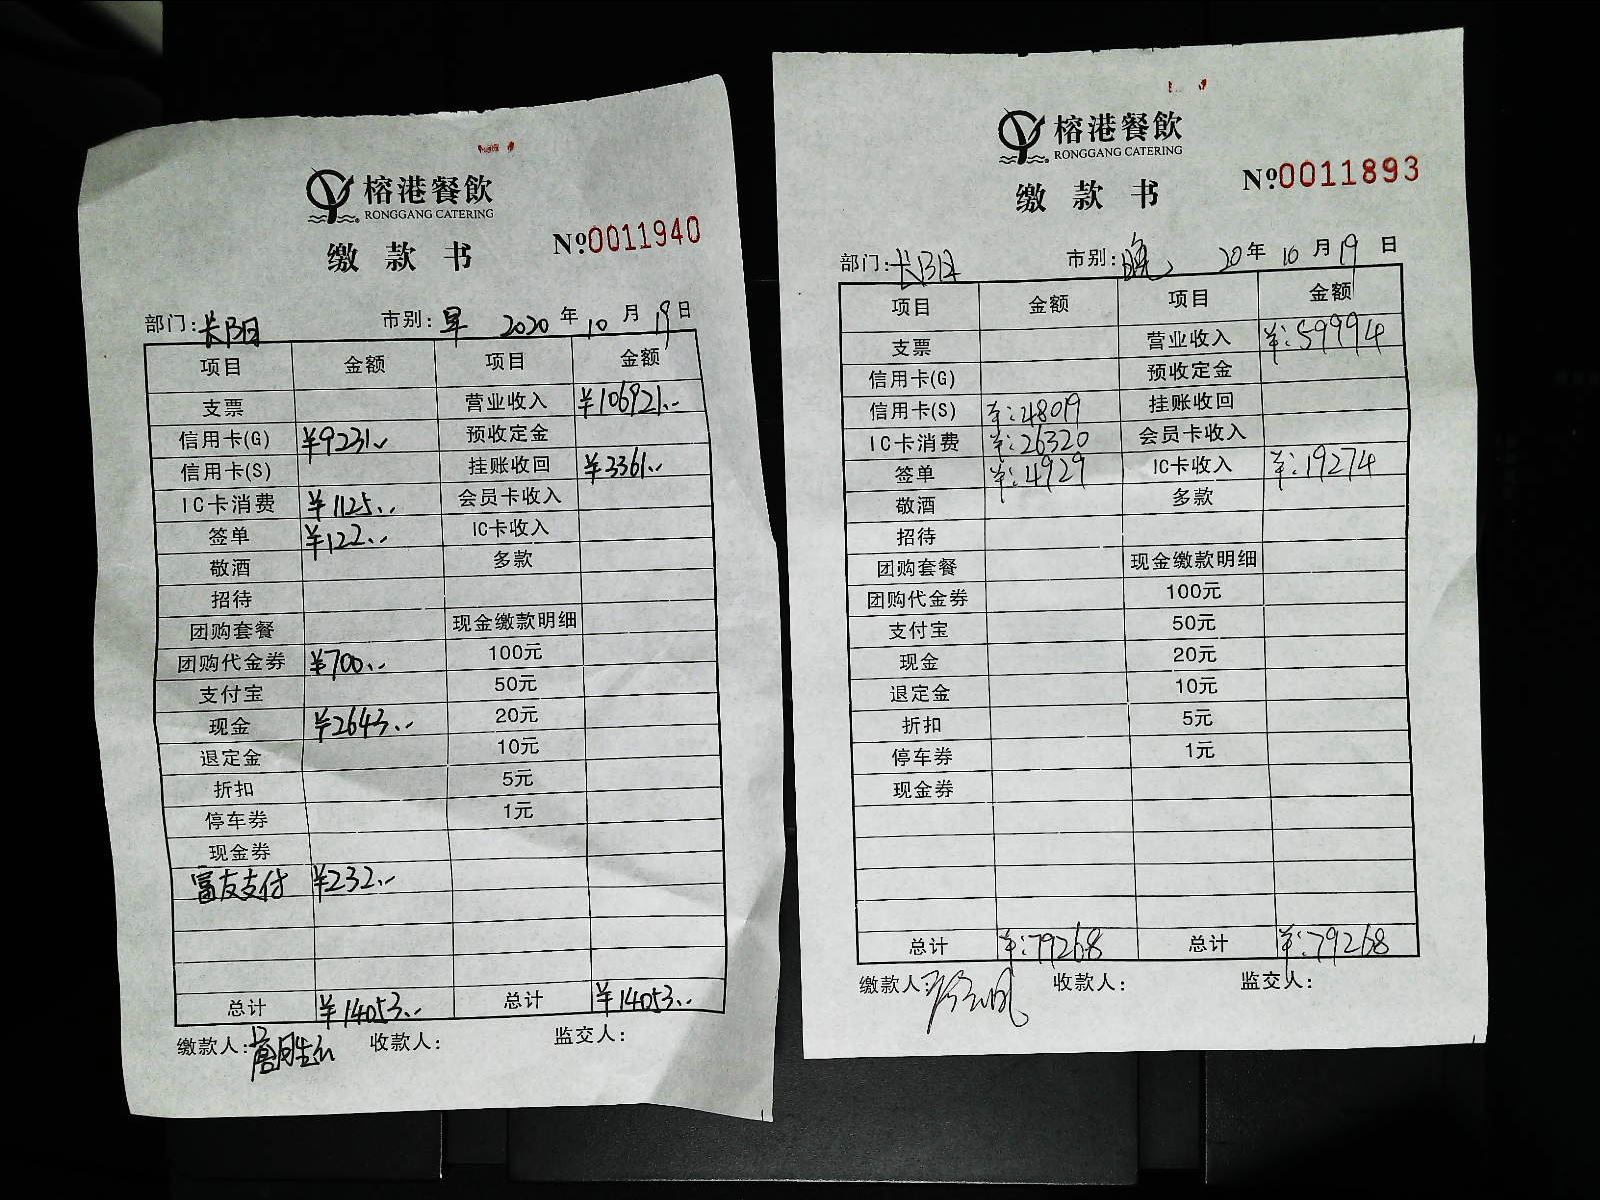 榕港餐飲
RONGGANG CATERING
缴款书
№0011940
部门: 长阳 市别: 早 2020 年 10 月 19 日
项目 金额 项目 金额
支票 营业收入 ¥106921.-
信用卡(G) ¥9231.- 预收定金
信用卡(S) 挂账收回 ¥3361.-
IC卡消费 ¥1125.- 会员卡收入
签单 ¥122.- IC卡收入
敬酒 多款
招待
团购套餐 现金缴款明细
团购代金券 ¥700.- 100元
支付宝 50元
现金 ¥2643.- 20元
退定金 10元
折扣 5元
停车券 1元
现金券
富友支付 ¥232.-
总计 ¥14053.- 总计 ¥14053.-
缴款人: 收款人: 监交人:
榕港餐飲
RONGGANG CATERING
缴款书
№0011893
部门: 长阳 市别: 晚 20 年 10 月 19 日
项目 金额 项目 金额
支票 营业收入 ¥:59994
信用卡(G) 预收定金
信用卡(S) ¥:48019 挂账收回
IC卡消费 ¥:26320 会员卡收入
签单 ¥:4929 IC卡收入 ¥:19274
敬酒 多款
招待
团购套餐 现金缴款明细
团购代金券 100元
支付宝 50元
现金 20元
退定金 10元
折扣 5元
停车券 1元
现金券
总计 ¥:79268 总计 ¥:79268
缴款人: 收款人: 监交人: